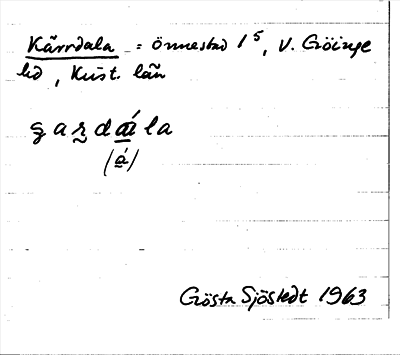 Kärrdala = önnestad 1⁵, V. Göinge
hd, Krist. län
(á)
Gösta Sjöstedt 1963